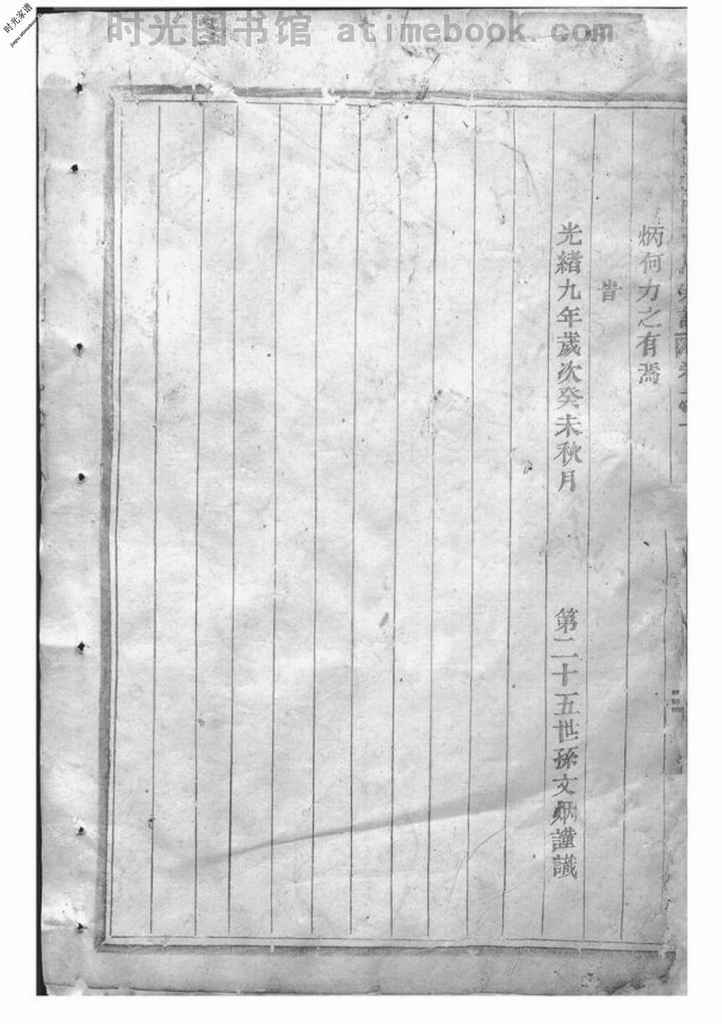 时光图书馆 atimebook.com
时光家谱
炳何力之有焉
旹
光緒九年歲次癸未秋月 第二十五世孫文炳謹識